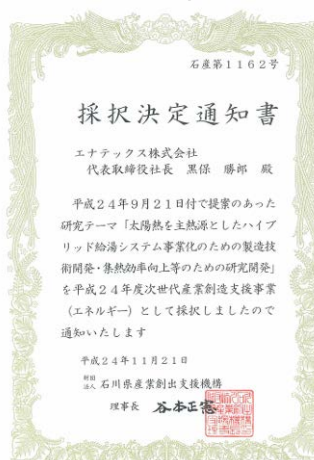 石産第1162号
採択決定通知書
エナテックス株式会社
代表取締役社長　黒保　勝郎　殿
平成24年9月21日付で提案のあった
研究テーマ「太陽熱を主熱源としたハイブ
リッド給湯システム事業化のための製造技
術開発・集熱効率向上等のための研究開発」
を平成24年度次世代産業創造支援事業
（エネルギー）として採択しましたので
通知いたします
平成24年11月21日
財団法人 石川県産業創出支援機構
理事長　谷本正憲